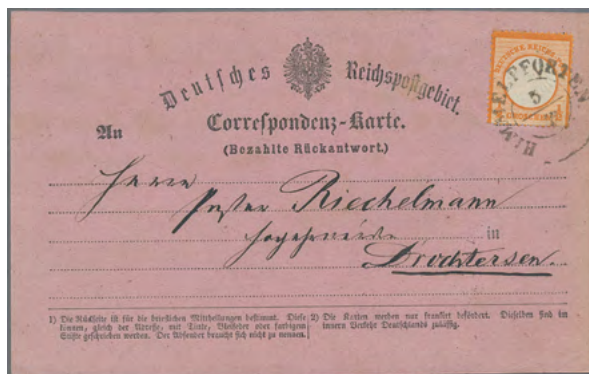 Deutsches Reichspostgebiet.
HIMMELPFORTEN
5
An
Correspondenz-Karte.
(Bezahlte Rückantwort.)
Herrn
Riechelmann
in
Drochtersen.
1) Die Rückseite ist für die brieflichen Mittheilungen bestimmt. Diese
können, gleich der Adresse, mit Tinte, Bleifeder oder farbigem
Stifte geschrieben werden. Der Absender braucht sich nicht zu nennen.
2) Die Karten werden nur frankirt befördert. Dieselben sind im
innern Verkehr Deutschlands zulässig.